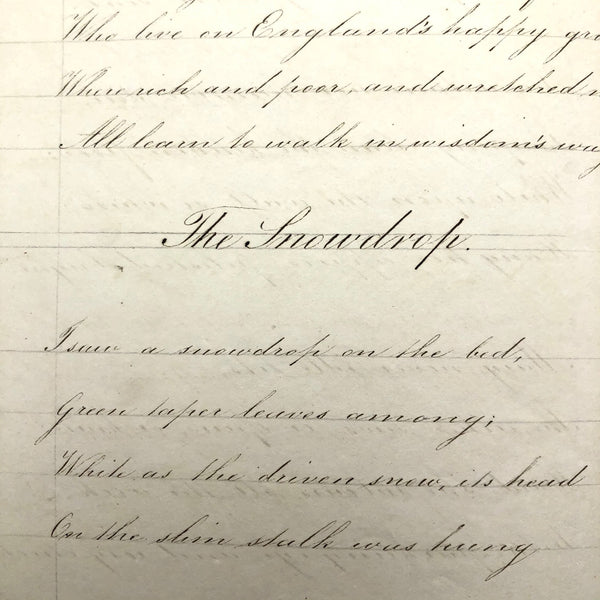 Who live on England's happy
Where rich and poor, and wretched
All learn to walk in wisdom's
The Snowdrop.
I saw a snowdrop on the bed,
Green taper leaves among;
White as the driven snow, its head
On the slim stalk was hung